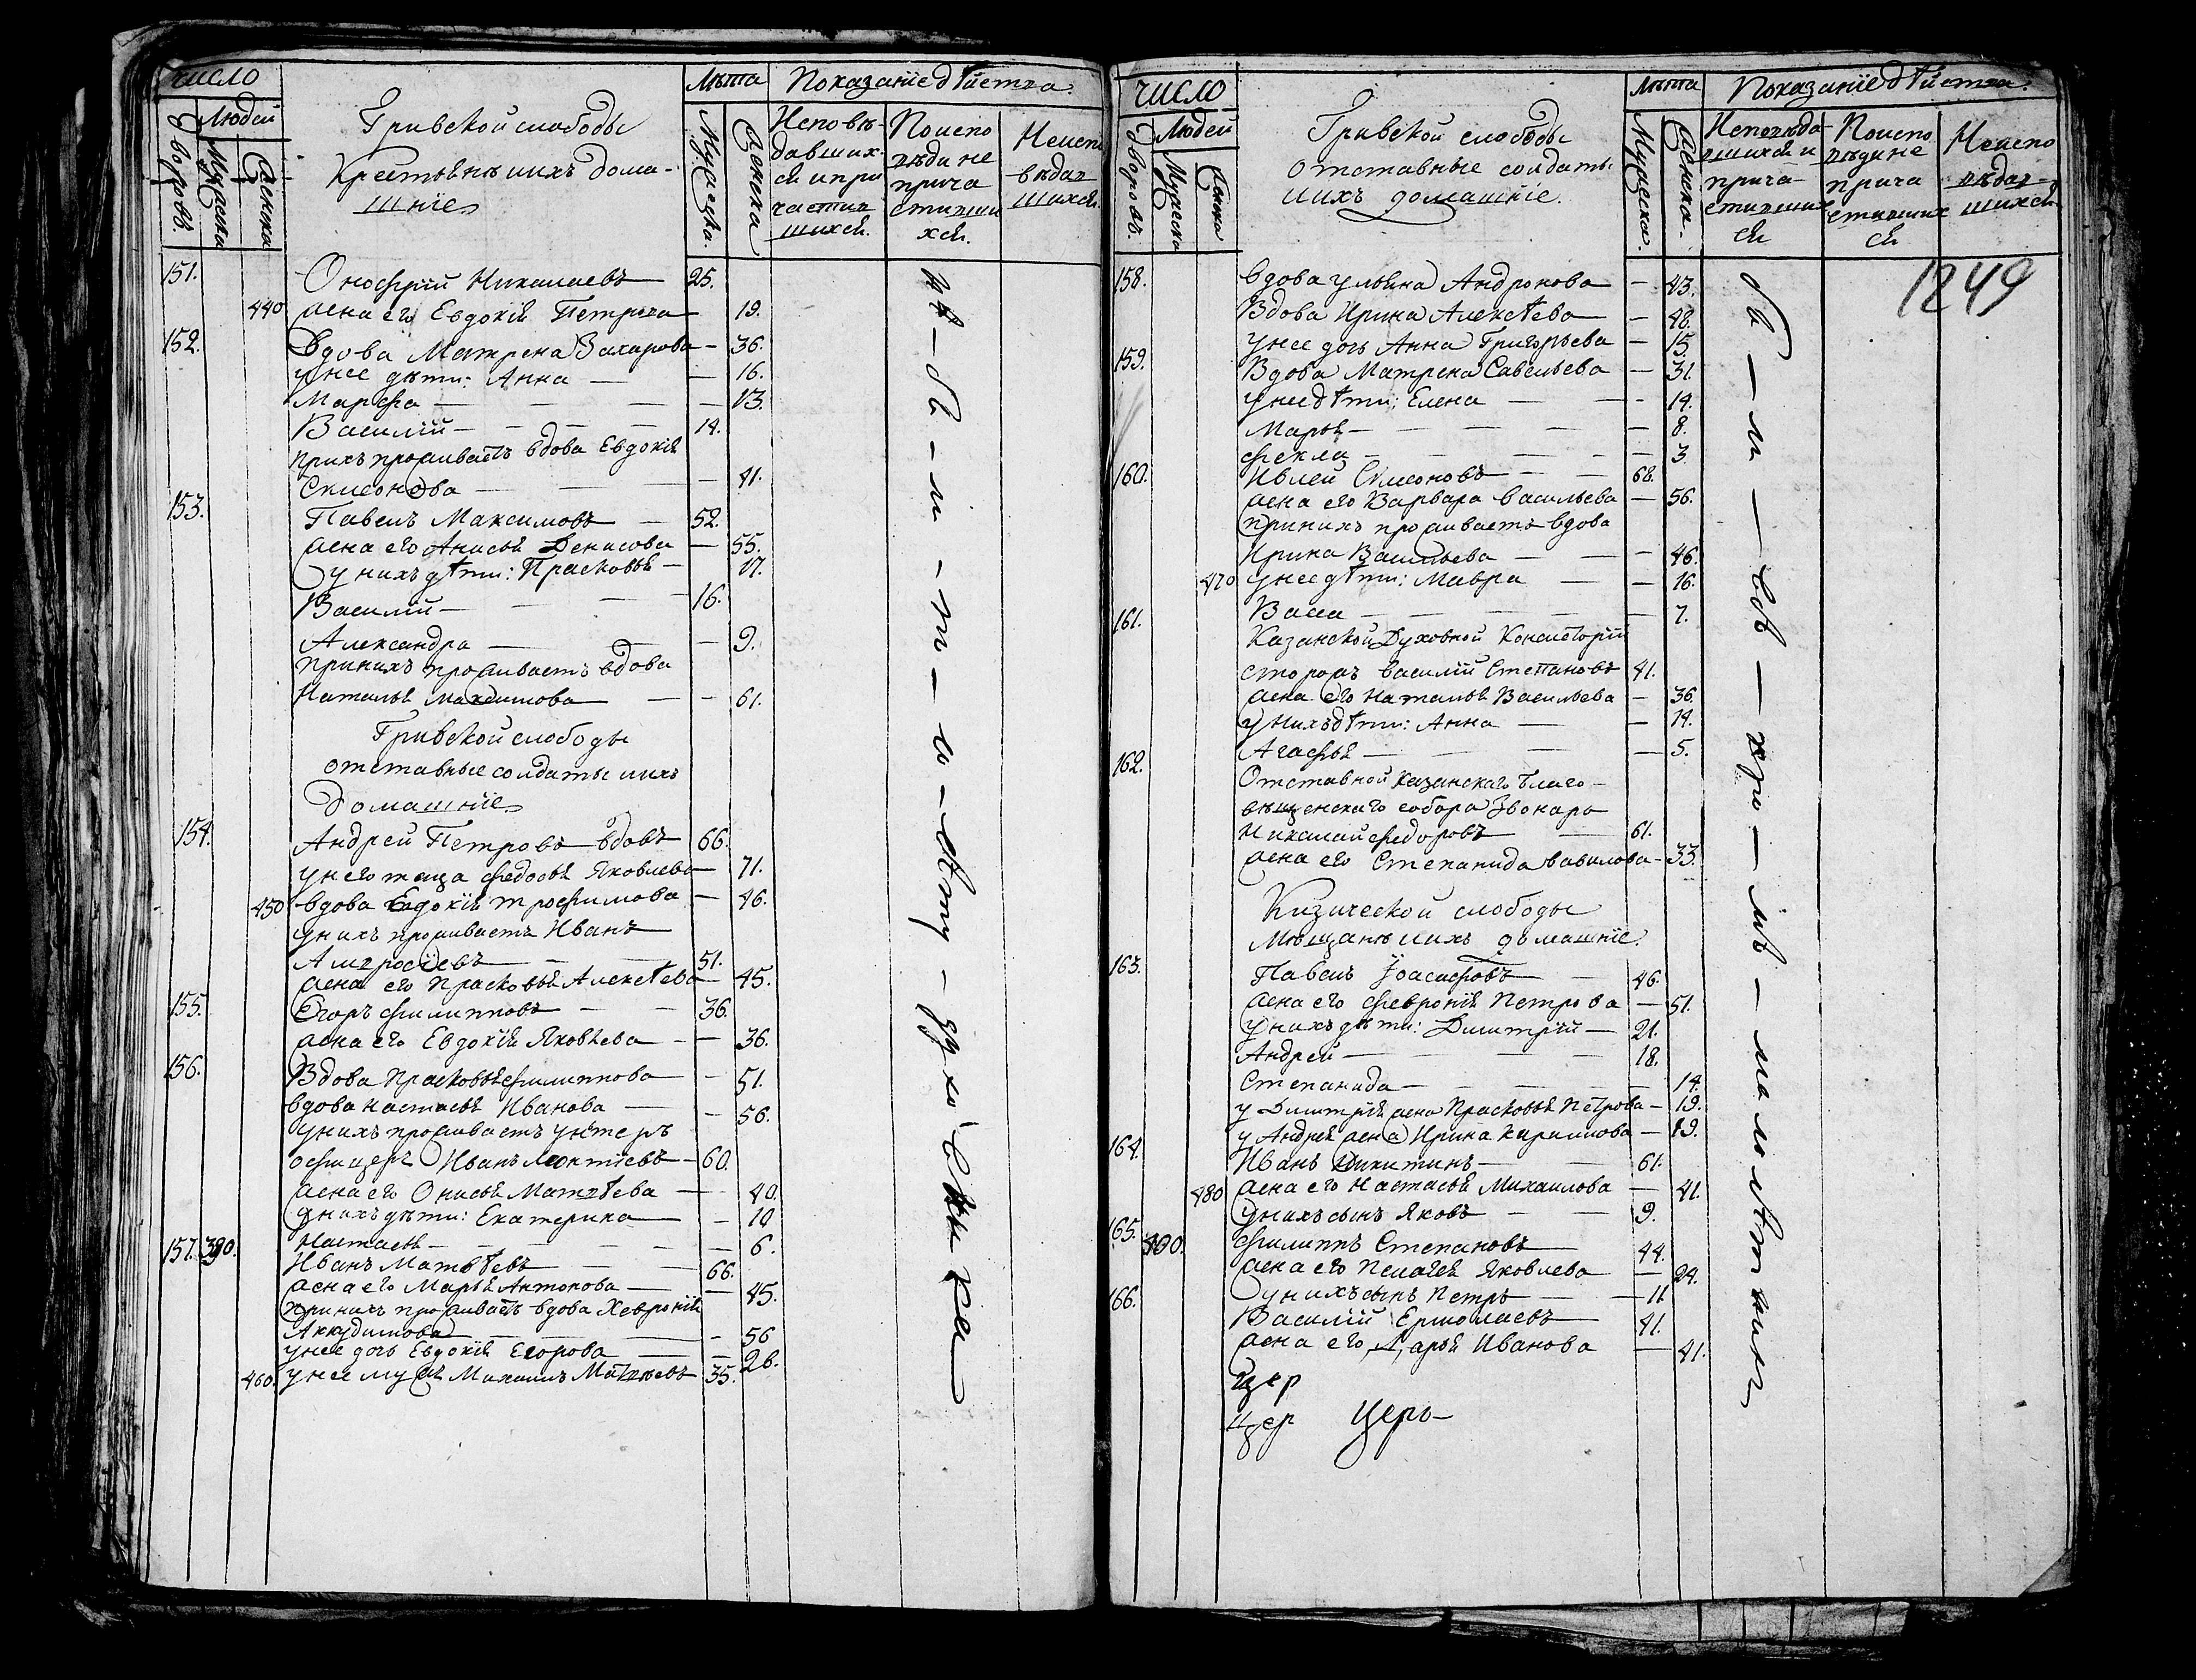 число
Людей
дворовъ.
Мужеска
Женска
Гривской слободы
Крестьянѣ ихъ дома-
шніе
Лѣта
Мужеска.
Женска
Показаніе дѣйства.
Исповѣ-
давших-
ся и при
частив
шихся.
По испо
вѣди не
прича
стивши
хся.
Неиспо
вѣдав
шихся
151. Онофрій Николаевъ 25.
440 жена его Евдокія Петрова 19.
152. Вдова Матрена Захарова 36.
у нее дѣти: Анна 16.
Марфа 13.
Василій 14.
При ихъ проживаетъ вдова Евдокія
Симонова 41.
153. Павелъ Максимовъ 52.
жена его Анисья Денисова 55.
у нихъ дѣти: Прасковья 17.
Василій 16.
Александра 9.
при нихъ проживаетъ вдова
Наталья Максимова 61.
Гривской слободы
отставные солдаты и ихъ
домашніе
154. Андрей Петровъ вдовъ 66.
у него теща Федосья Яковлева 71.
450 вдова Евдокія Трофимова 46.
у нихъ проживаетъ Иванъ
Амвросіевъ 51.
жена его Прасковья Алексѣева 45.
155. Егоръ Филипповъ 36.
жена его Евдокія Яковлева 36.
156. Вдова Прасковья Филиппова 51.
вдова Настасья Иванова 56.
у нихъ проживаетъ унтеръ
офицеръ Иванъ Леонтіевъ 60.
жена его Онисья Матвѣева 40.
у нихъ дѣти: Екатерина 10
Настасья 6.
157. 390. Иванъ Матвѣевъ 66.
жена его Марья Антонова 45.
при нихъ проживаетъ вдова Хевронія
Аккудимова 56
у нее дочь Евдокія Егорова 26.
460. у нее мужъ Михаилъ Матвѣевъ 35.
число
Людей
дворовъ.
Мужеска
Женска
Гривской слободы
отставные солдаты
и ихъ домашніе.
Лѣта
Мужеска.
Женска.
Показаніе дѣйства.
Исповѣда
вшихся и
прича-
стивших
ся
По испо
вѣди не
прича
стивших
ся
Неиспо
вѣдав-
шихся
1249
158. вдова Ульяна Андронова 43.
Вдова Ирина Алексѣева 48.
у нее дочь Анна Григорьева 15.
159. Вдова Матрена Савельева 31.
у нее дѣти: Елена 14.
Марья 8.
Фекла 3
160. Ивлей Симоновъ 68.
жена его Варвара Васильева 56.
при нихъ проживаетъ вдова
Ирина Васильева 46.
470 у нее дѣти: Мавра 16.
Васса 7.
161. Казанской Духовной Консисторіи
сторожъ Василій Степановъ 41.
жена его Наталья Васильева 36.
у нихъ дѣти: Анна 14.
Агафья 5.
162. Отставной Казанскаго Благо-
вѣщенскаго собора Звонарь
Николай Федоровъ 61.
жена его Степанида Вавилова 33.
Кизической слободы
Мѣщанѣ и ихъ домашніе.
163. Павелъ Іоасафовъ 46.
жена его Февронія Петрова 51.
у нихъ дѣти: Димитрій 21.
Андрей 18.
Степанида 14.
у Димитрія жена Прасковья Петрова 19.
у Андрея жена Ирина Кирилова 19.
164. Иванъ Никитинъ 61.
480 жена его Настасья Михаилова 41.
у нихъ сынъ Яковъ 9.
165. 400. Филиппъ Степановъ 44.
жена его Пелагея Яковлева 24.
у нихъ сынъ Петръ 11
166. Василій Ермолаевъ 41.
жена его Дарья Иванова 41.
Цер
цер Церь